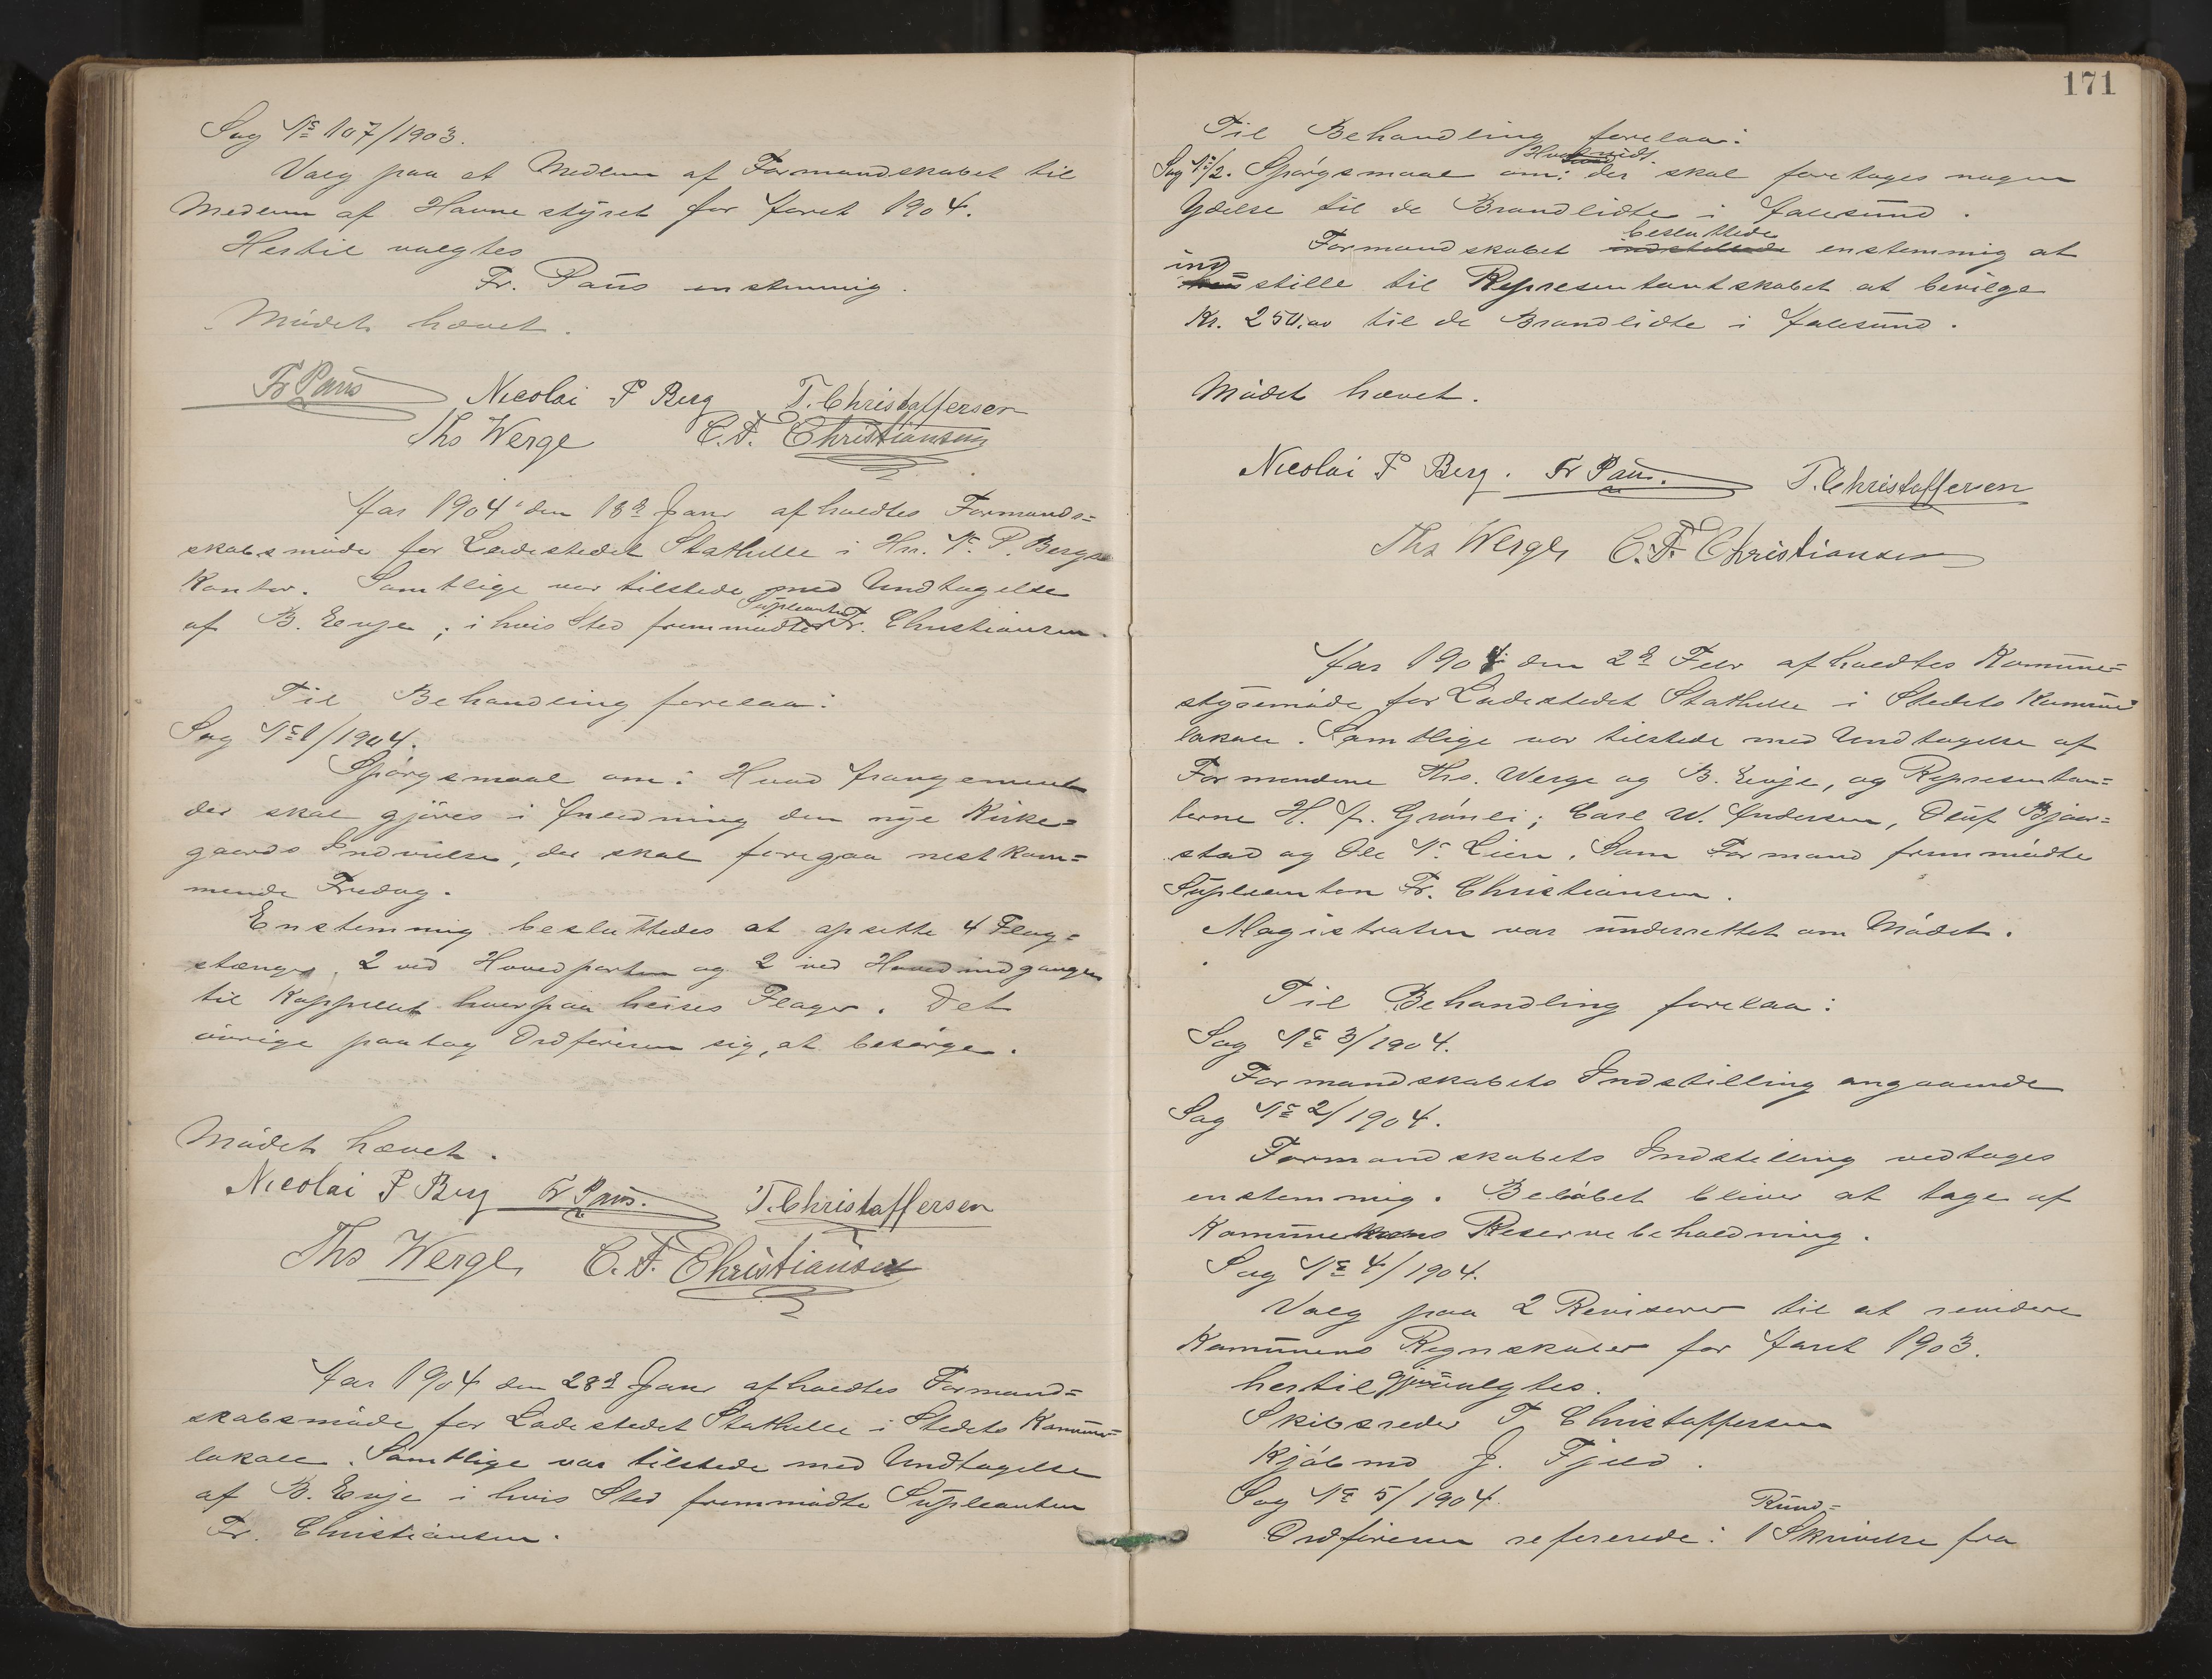 Sag No 107/1903.
Valg paa et Medlem af Formandskabet til
Medlem af Havnestyret for Aaret 1904.
Hertil valgtes
Fr. Paus enstemmig.
Mödet hævet.
Fr Paus Nicolai P Berg T. Christoffersen
Ths Werge C. F. Christiansen
Aar 1904 den 18d Janr afholdtes Formand=
skabsmöde for Ladestedet Stathelle i Hr. N. P. Bergs
Kontor. Samtlige var tilstede med Undtagelse
af B. Eeuje; i hvis Sted fremmödte Supleanten Fr. Christiansen.
Til Behandling forelaa:
Sag No 1/1904.
Spörgsmaal om: Hvad Arangement
der skal gjöres i Anledning den nye Kirke=
gaards Indvielse, der skal foregaa nestkom=
mende Fredag.
Enstemmig besluttedes at opsette 4 Flag=
stænger, 2 ved Hovedporten og 2 ved Hovedindgangen
til Kappellet hvorpaa heises Flager. Det
övrige paatog Ordföreren sig, at besörge.
Mödet hævet.
Nicolai P Berg Fr Paus. T. Christoffersen
Ths Werge C. F. Christiansen
Aar 1904 den 28d Janr afholdtes Formand=
skabsmöde for Ladestedet Stathelle i Stedets Kommune=
lokale. Samtlige var tilstede med Undtagelse
af B. Eeuje i hvis Sted fremmödte Supleanten
Fr. Christiansen.
171
Til Behandling forelaa:
Sag No 2. Spörgsmaal om: Hvorvidt der skal foretages nogen
Ydelse til de Brandlidte i Aalesund.
Formandskabet indstillede besluttede enstemmig at
indstille til Representantskabet at bevilge
Kr. 250,00 til de Brandlidte i Aalesund.
Mödet hævet.
Nicolai P Berg. Fr Paus. T. Christoffersen
Ths Werge C. F. Christiansen
Aar 1904 den 2d Febr afholdtes Kommune=
styremöde for Ladestedet Stathelle i Stedets Kommune
lokale. Samtlige var tilstede med Undtagelse af
Formendene Ths. Werge og B. Eeuje, og Representan=
terne H. A. Grönli; Carl W. Andersen, Oluf Bjaar=
stad og Ole N. Lien. Som Formand fremmödte
Supleanten Fr. Christiansen.
Magistraten var underrettet om Mödet.
Til Behandling forelaa:
Sag No 3/1904.
Formandskabets Indstilling angaaende
Sag No 2/1904.
Formandskabets Indstilling vedtages
enstemmig. Belöbet bliver at tage af
Kommunekassens Reservebeholdning.
Sag No 4/1904.
Valg paa 2 Revisorer til at revidere
Kommunens Regnskaber for Aaret 1903.
hertil gjenvalgtes.
Skibsreder T Christoffersen
Kjöbmd J. Fjeld.
Sag No 5/1904.
Ordföreren refererede: 1 Rund=Skrivelse fra